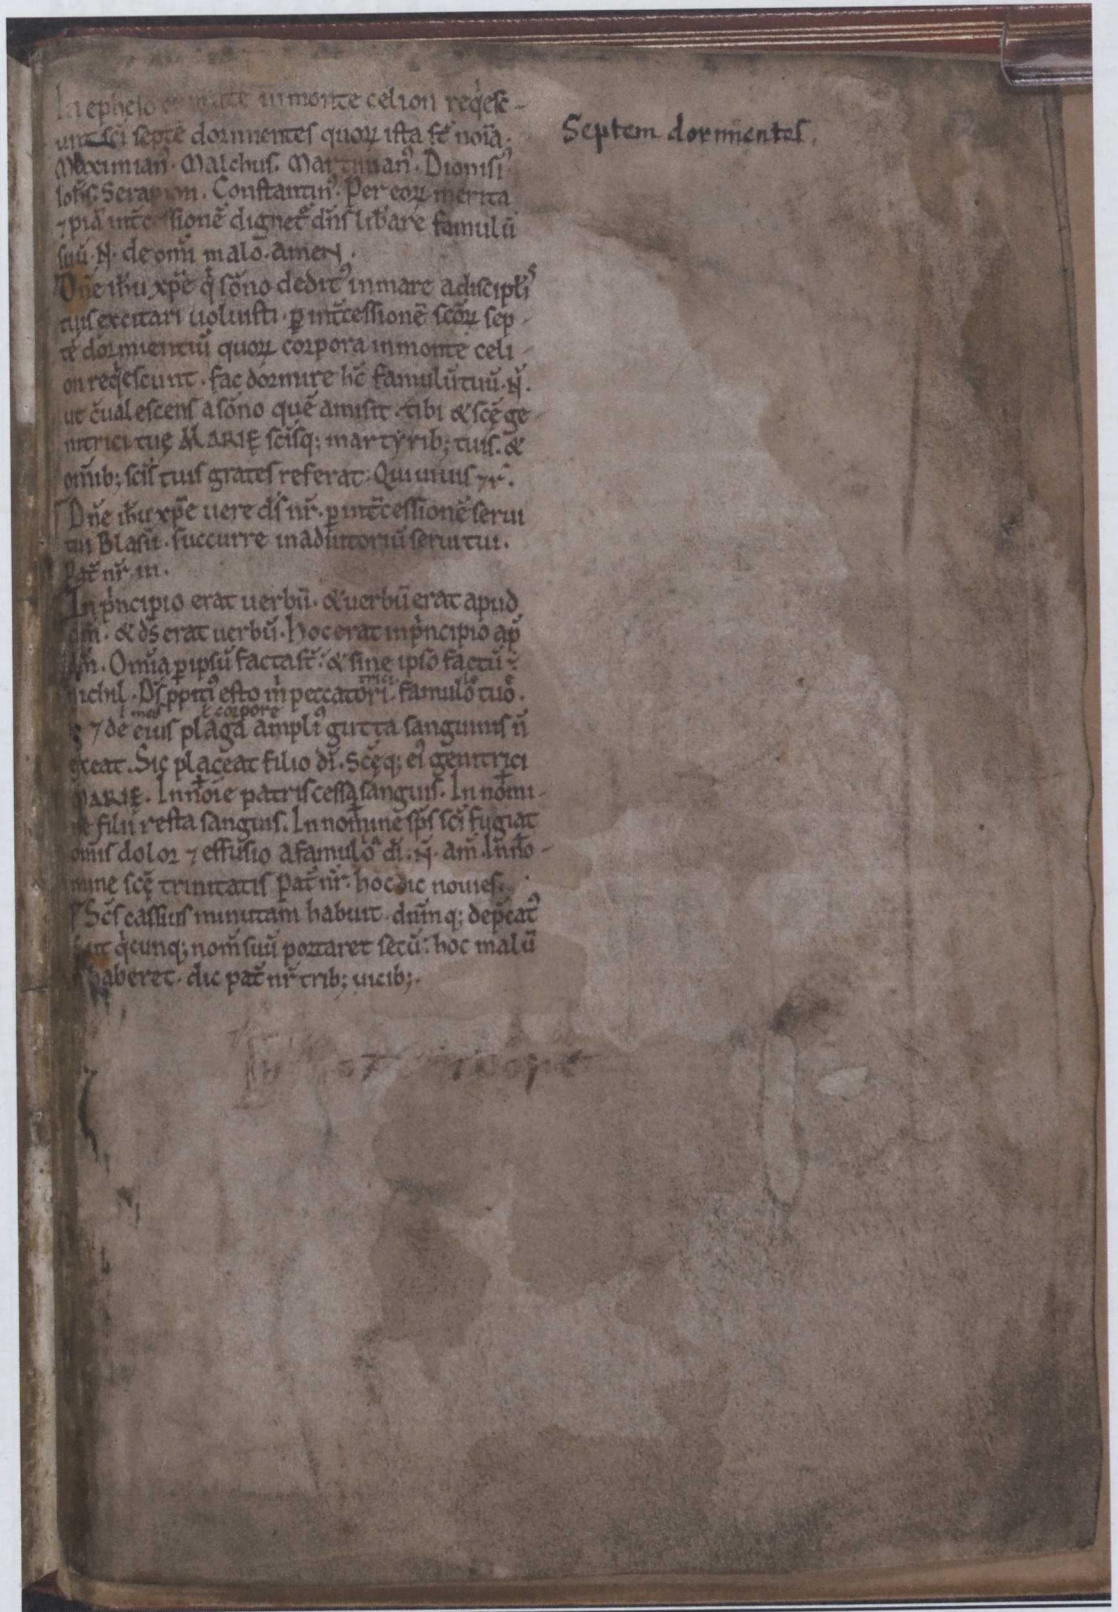 In epheso ciuitate in monte celion reqͥesc-
unt sci̅ septe̅ dormientes quoꝝ ista st̅ noi̅a.
Maximianꝰ. Malchus. Martinianꝰ. Dionisiꝰ.
Ioh̅s. Serapion. Constantinꝰ. Per eoꝝ merita
⁊ pia̅ int̅cessione̅ dignet᷑ dn̅s lib̅are famulu̅
suu̅ .N̅. de om̅i malo. Amen.
Dn̅e ih̅u xp̅e qͥ so̅no deditꝰ in mare a discipli̅s
tuis excitari uoluisti. ꝑ int̅cessione̅ sco̅ꝝ sep-
te̅ dormientiu̅ quoꝝ corpora in monte celi-
on reqͥescunt. fac dormire hc̅ famulu̅ tuu̅ .N̅.
ut c̅ualescens a so̅no que̅ amisit. tibi & sce̅ ge-
nitrici tuę MARIĘ scis̅q; martyrib; tuis. &
om̅ib; scis̅ tuis grates referat. Qui uiuis ⁊ r̅.
Dn̅e ih̅u xp̅e uere ds̅ nr̅. ꝑ int̅cessione̅ serui
tui Blasii. succurre in adiutoriu̅ serui tui.
Pat̅ nr̅ .iii.
In pͥncipio erat uerbu̅. & uerbu̅ erat apud
dm̅. & ds̅ erat uerbu̅. Hoc erat in pͥncipio ap̅
dm̅. Omi̅a ꝑ ipsu̅ facta st̅. & sine ipso factu̅ ÷
trici la
nichil. Ds̅ ppitiꝰ esto m̅ peccatori. famulo tuo.
l̵ mea l̵ corpore
⁊ de eius plaga ampliꝰ gutta sanguinis n̅
exeat. Sic placeat filio di̅. Sce̅q; eiꝰ genitrici
MARIĘ. In no̅ie patris cessa sanguis. In nomi-
ne filii resta sanguis. In nomine sps̅ sci̅ fugiat
om̅is dolor ⁊ effusio a famulo di̅ .N̅. am̅. In no-
mine sce̅ trinitatis Pat̅ nr̅. hoc dic nouies.
Sc̅s cassius minutam habuit. dn̅mq; dep̅catꝰ
fuit qͥcunq; nom̅ suu̅ portaret secu̅. hoc malu̅
haberet. dic pat̅ nr̅ trib; uicib;.
Septem dormientes.